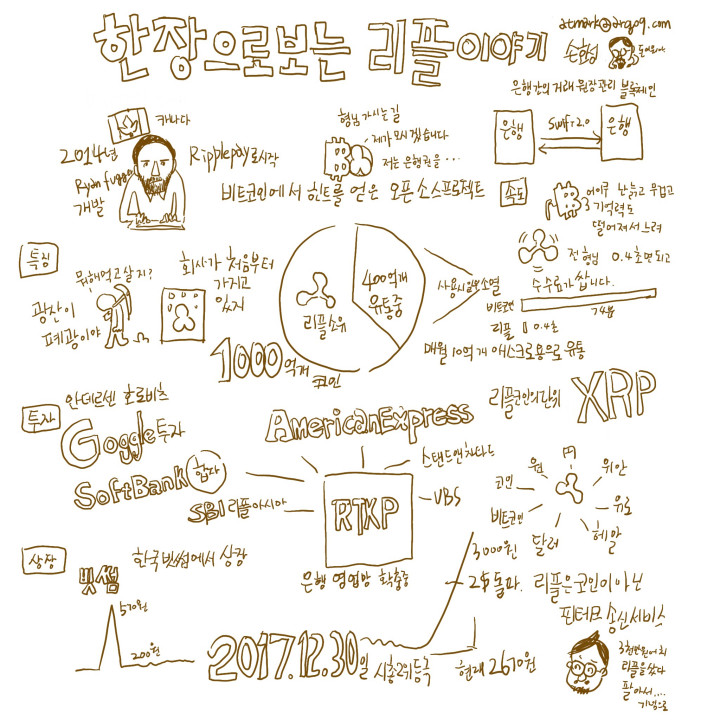 한장으로보는 리플이야기
atmark@argo9.com
손현성
은행간의 거래 원장관리 블록체인
캐나다
2014년
Ryan fugger
개발
Ripplepay로시작
형님 가시는 길
제가 모시겠습니다
저는 은행권을...
은행
Swift 2.0
은행
비트코인에서 힌트를 얻은 오픈소스프로젝트
속도
어이쿠 난 늙고 무겁고
기억력도
떨어져서 느려
특징
뭐해먹고살지?
광산이
폐광이야
회사가 처음부터
가지고
있지
리플소유
400억개
유통중
1000억개
코인
사용시 일부소멸
전 형님 0.4초면되고
수수료가 쌉니다.
비트코인
74분
리플 0.4초
매월 10억개 에스크로용으로 유통
투자
안데르센 호로비츠
Goggle투자
SoftBank
합자
SBI 리플아시아
AmericanExpress
스탠드앤차타드
UBS
RTXP
은행 영업망 확충중
리플코인의단위
XRP
코인
원
円
위안
유로
헤알
달러
비트코인
상장
한국빗썸에서 상장
빗썸
570원
200원
2017.12.30일
시총2위등극
3000원
2$ 돌파
현재 2670원
리플은코인이 아닌
핀테크 송신서비스
3천만원어치
리플을샀다
팔아서....
기념으로